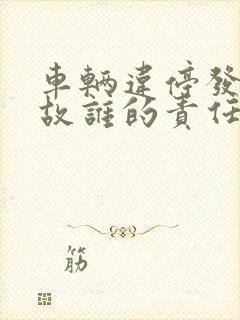 車輛違停發
故誰的責任
筋